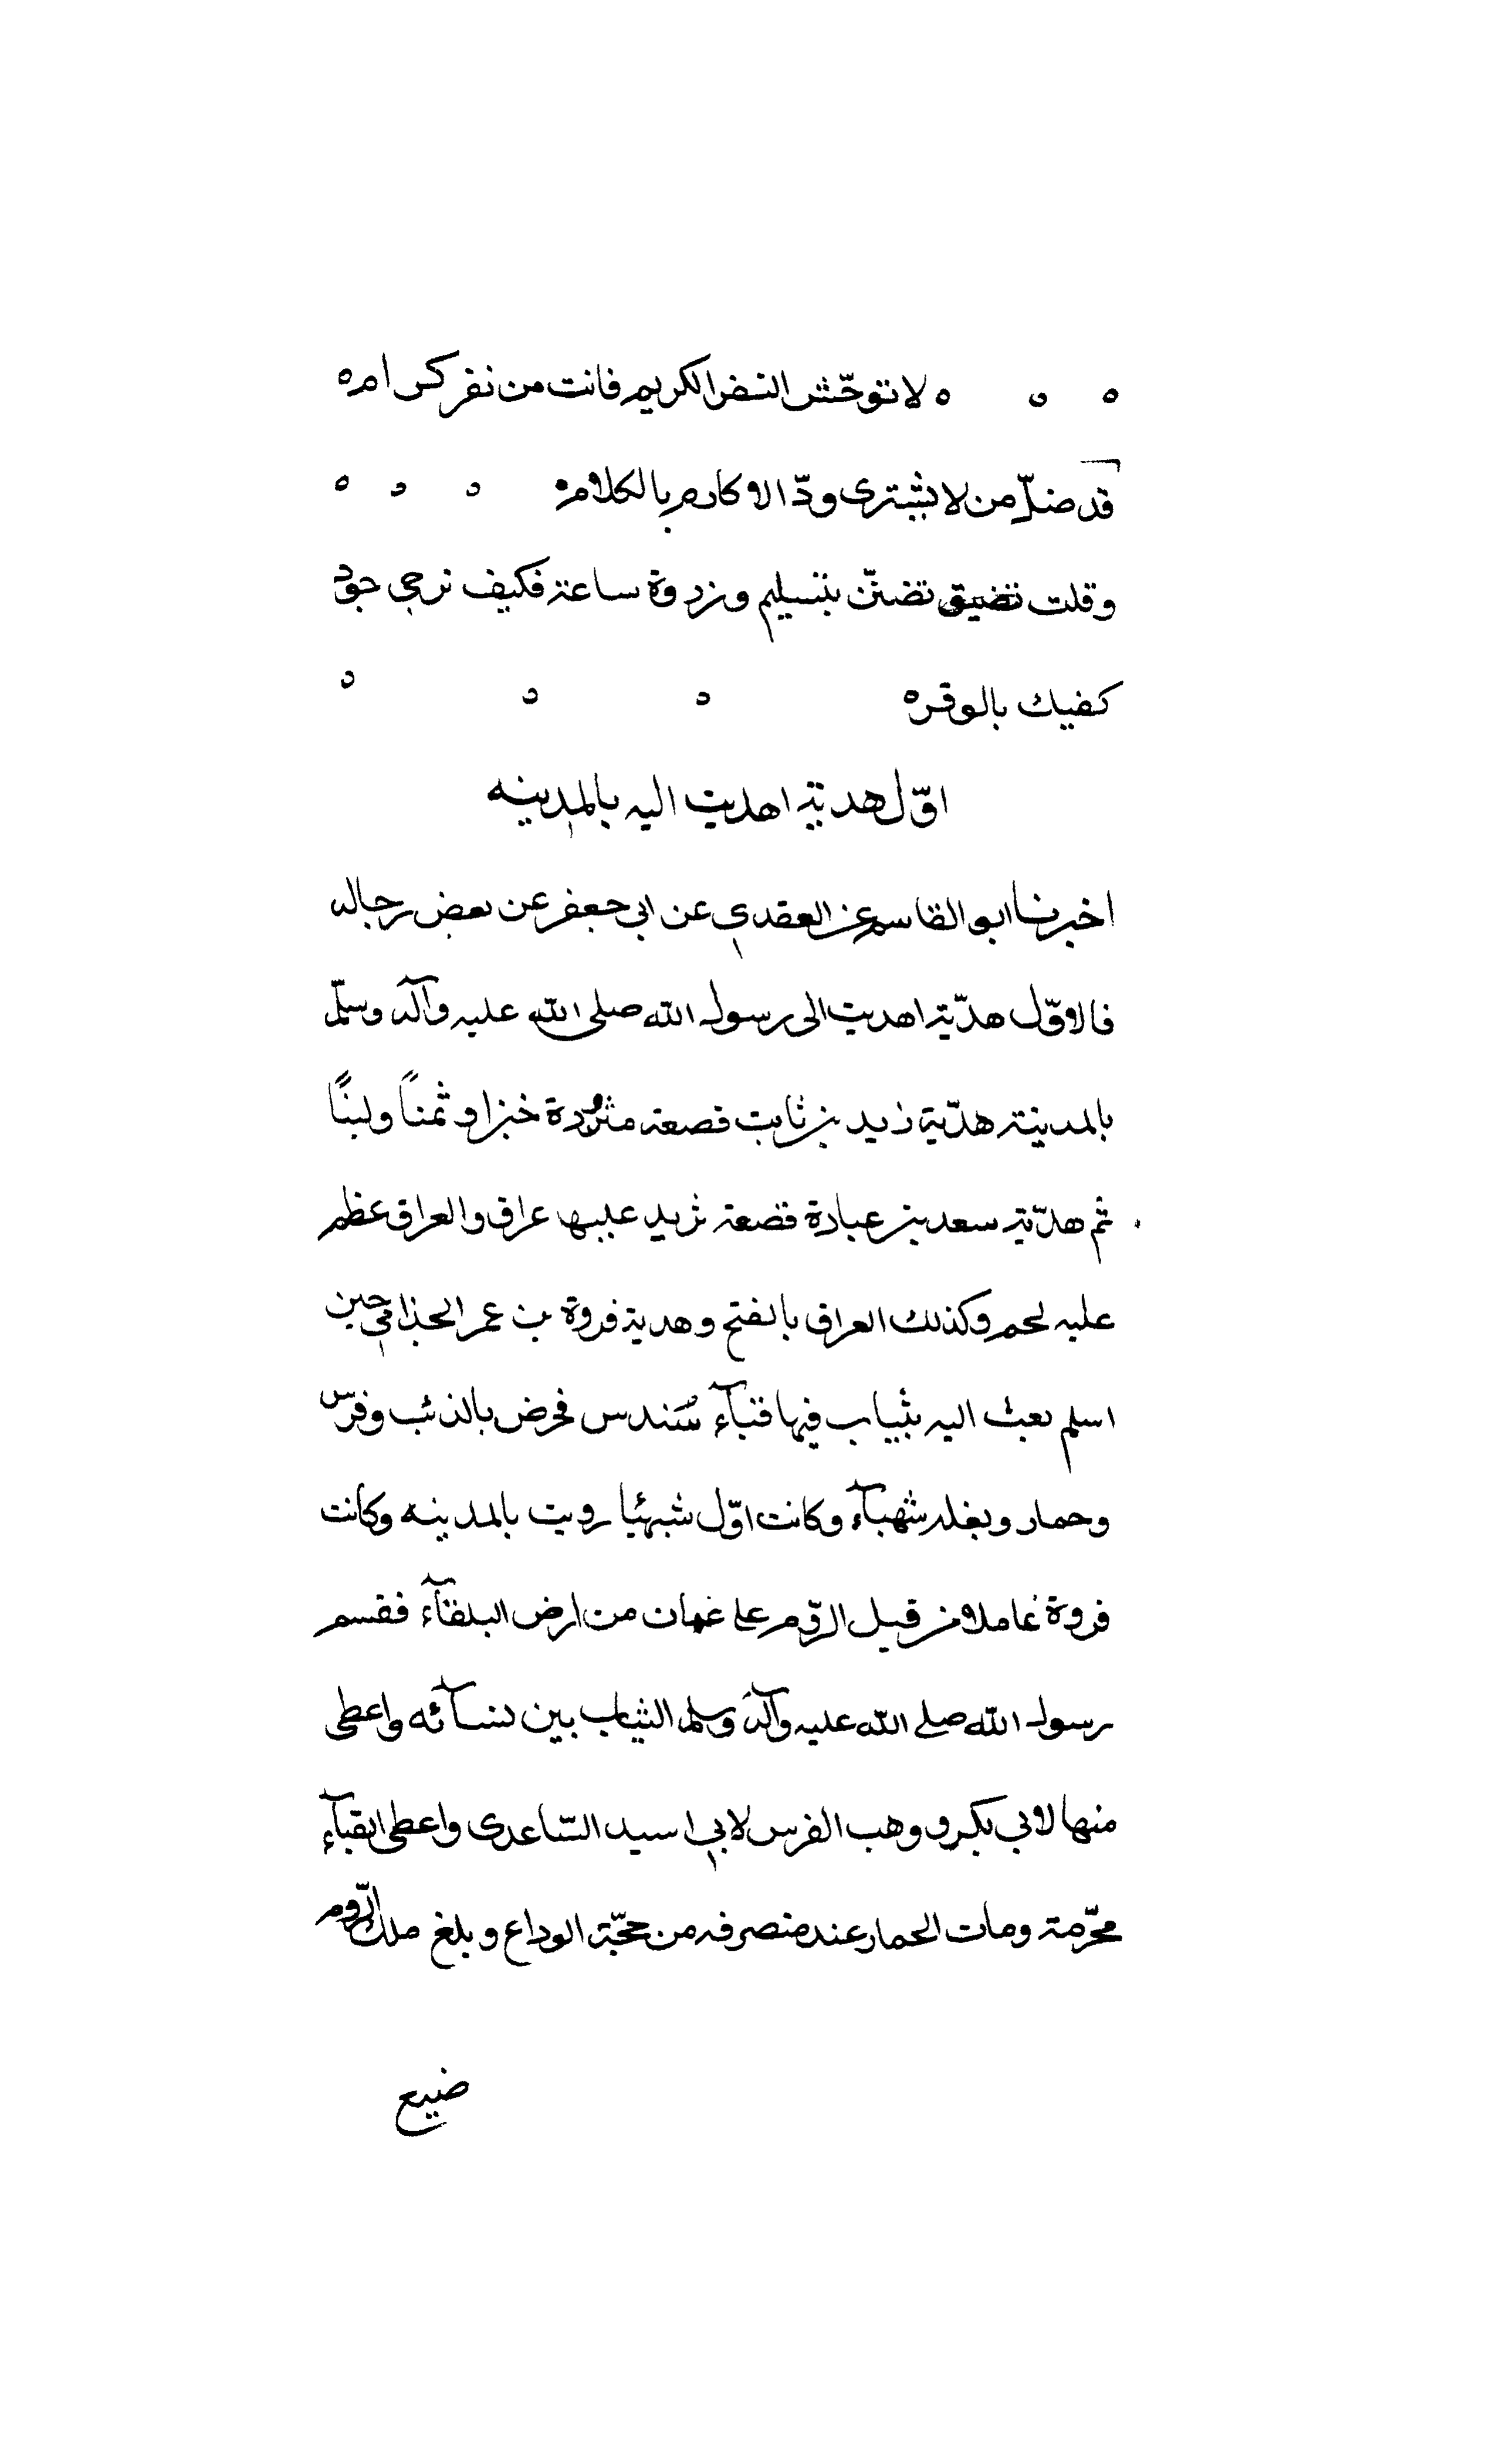 ه ه ه لا توحّش النفر الكريم فانت من نفر كرام ه
قد ضلّ من لا يشترى ودّ الاكارم بالكلام ه ه ه ه
وقلت تضيق تضنّن بتسليم وزدوة ساعة فكيف نرجي جود
كفيك بالوقر ه ه ه ه
اوّل هديّة اهديت اليه بالمدينه
اخبرنا ابو القاسم عن العقدي عن ابي جعفر عن بعض رجاله
قالاوّل هدّية اهديت الى رسول الله صلى الله عليه وآله وسلّم
بالمدينة هدّية زيد بن ثابت قصعة مثرُدة خبزا وثمناً ولبناً
ثم هدّية سعد بن عبادة قصعة ثريد عليها عراق والعراق عظم
عليه لحم وكذلك العراق بالفتح وهدية فروة بن عمر الجذامي حين
اسلم بعث اليه بثياب فيها قبآء سُندس مخرض بالذئب وفرس
وحمار وبغله شهبآء وكانت اوّل شبهئيا رويت بالمدينه وكانت
فروة غاملا من قبل الرّوم على غمان من ارض البلقآء فقسم
رسول الله صلى الله عليه وآله وسلم الثياب بين نسآئه واعطى
منها لابي بكر ووهب الفرس لابي اسيد السّاعدى واعطى القبآء
محرّمة ومات الحمار عند منصرفه من حجّة الوداع وبلغ ملك الرّوم
ضيع